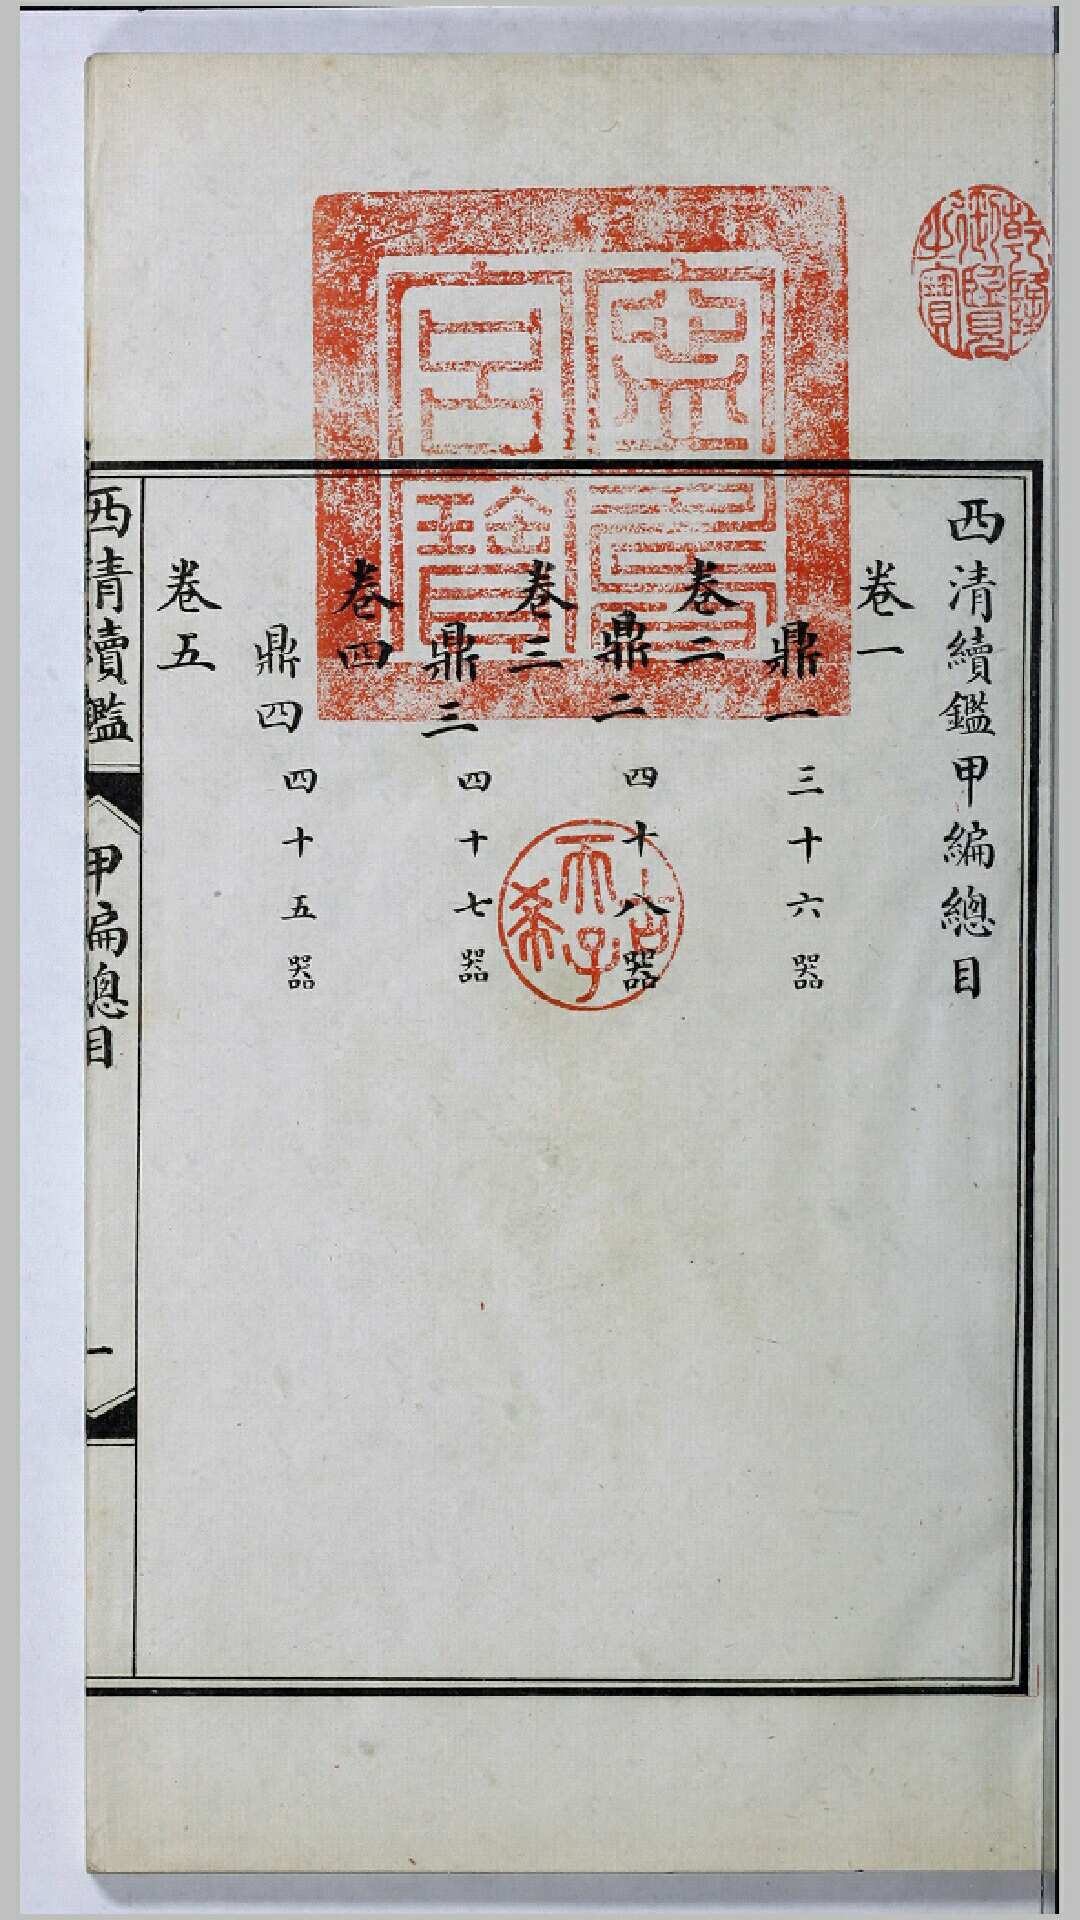 乾隆御覽之寶
寧壽宮寶
西清續鑑甲編總目
卷一
鼎一 三十六器
卷二
鼎二 四十八器
卷三
鼎三 四十七器
卷四
鼎四 四十五器
卷五
古希天子
西清續鑑 甲編總目 一